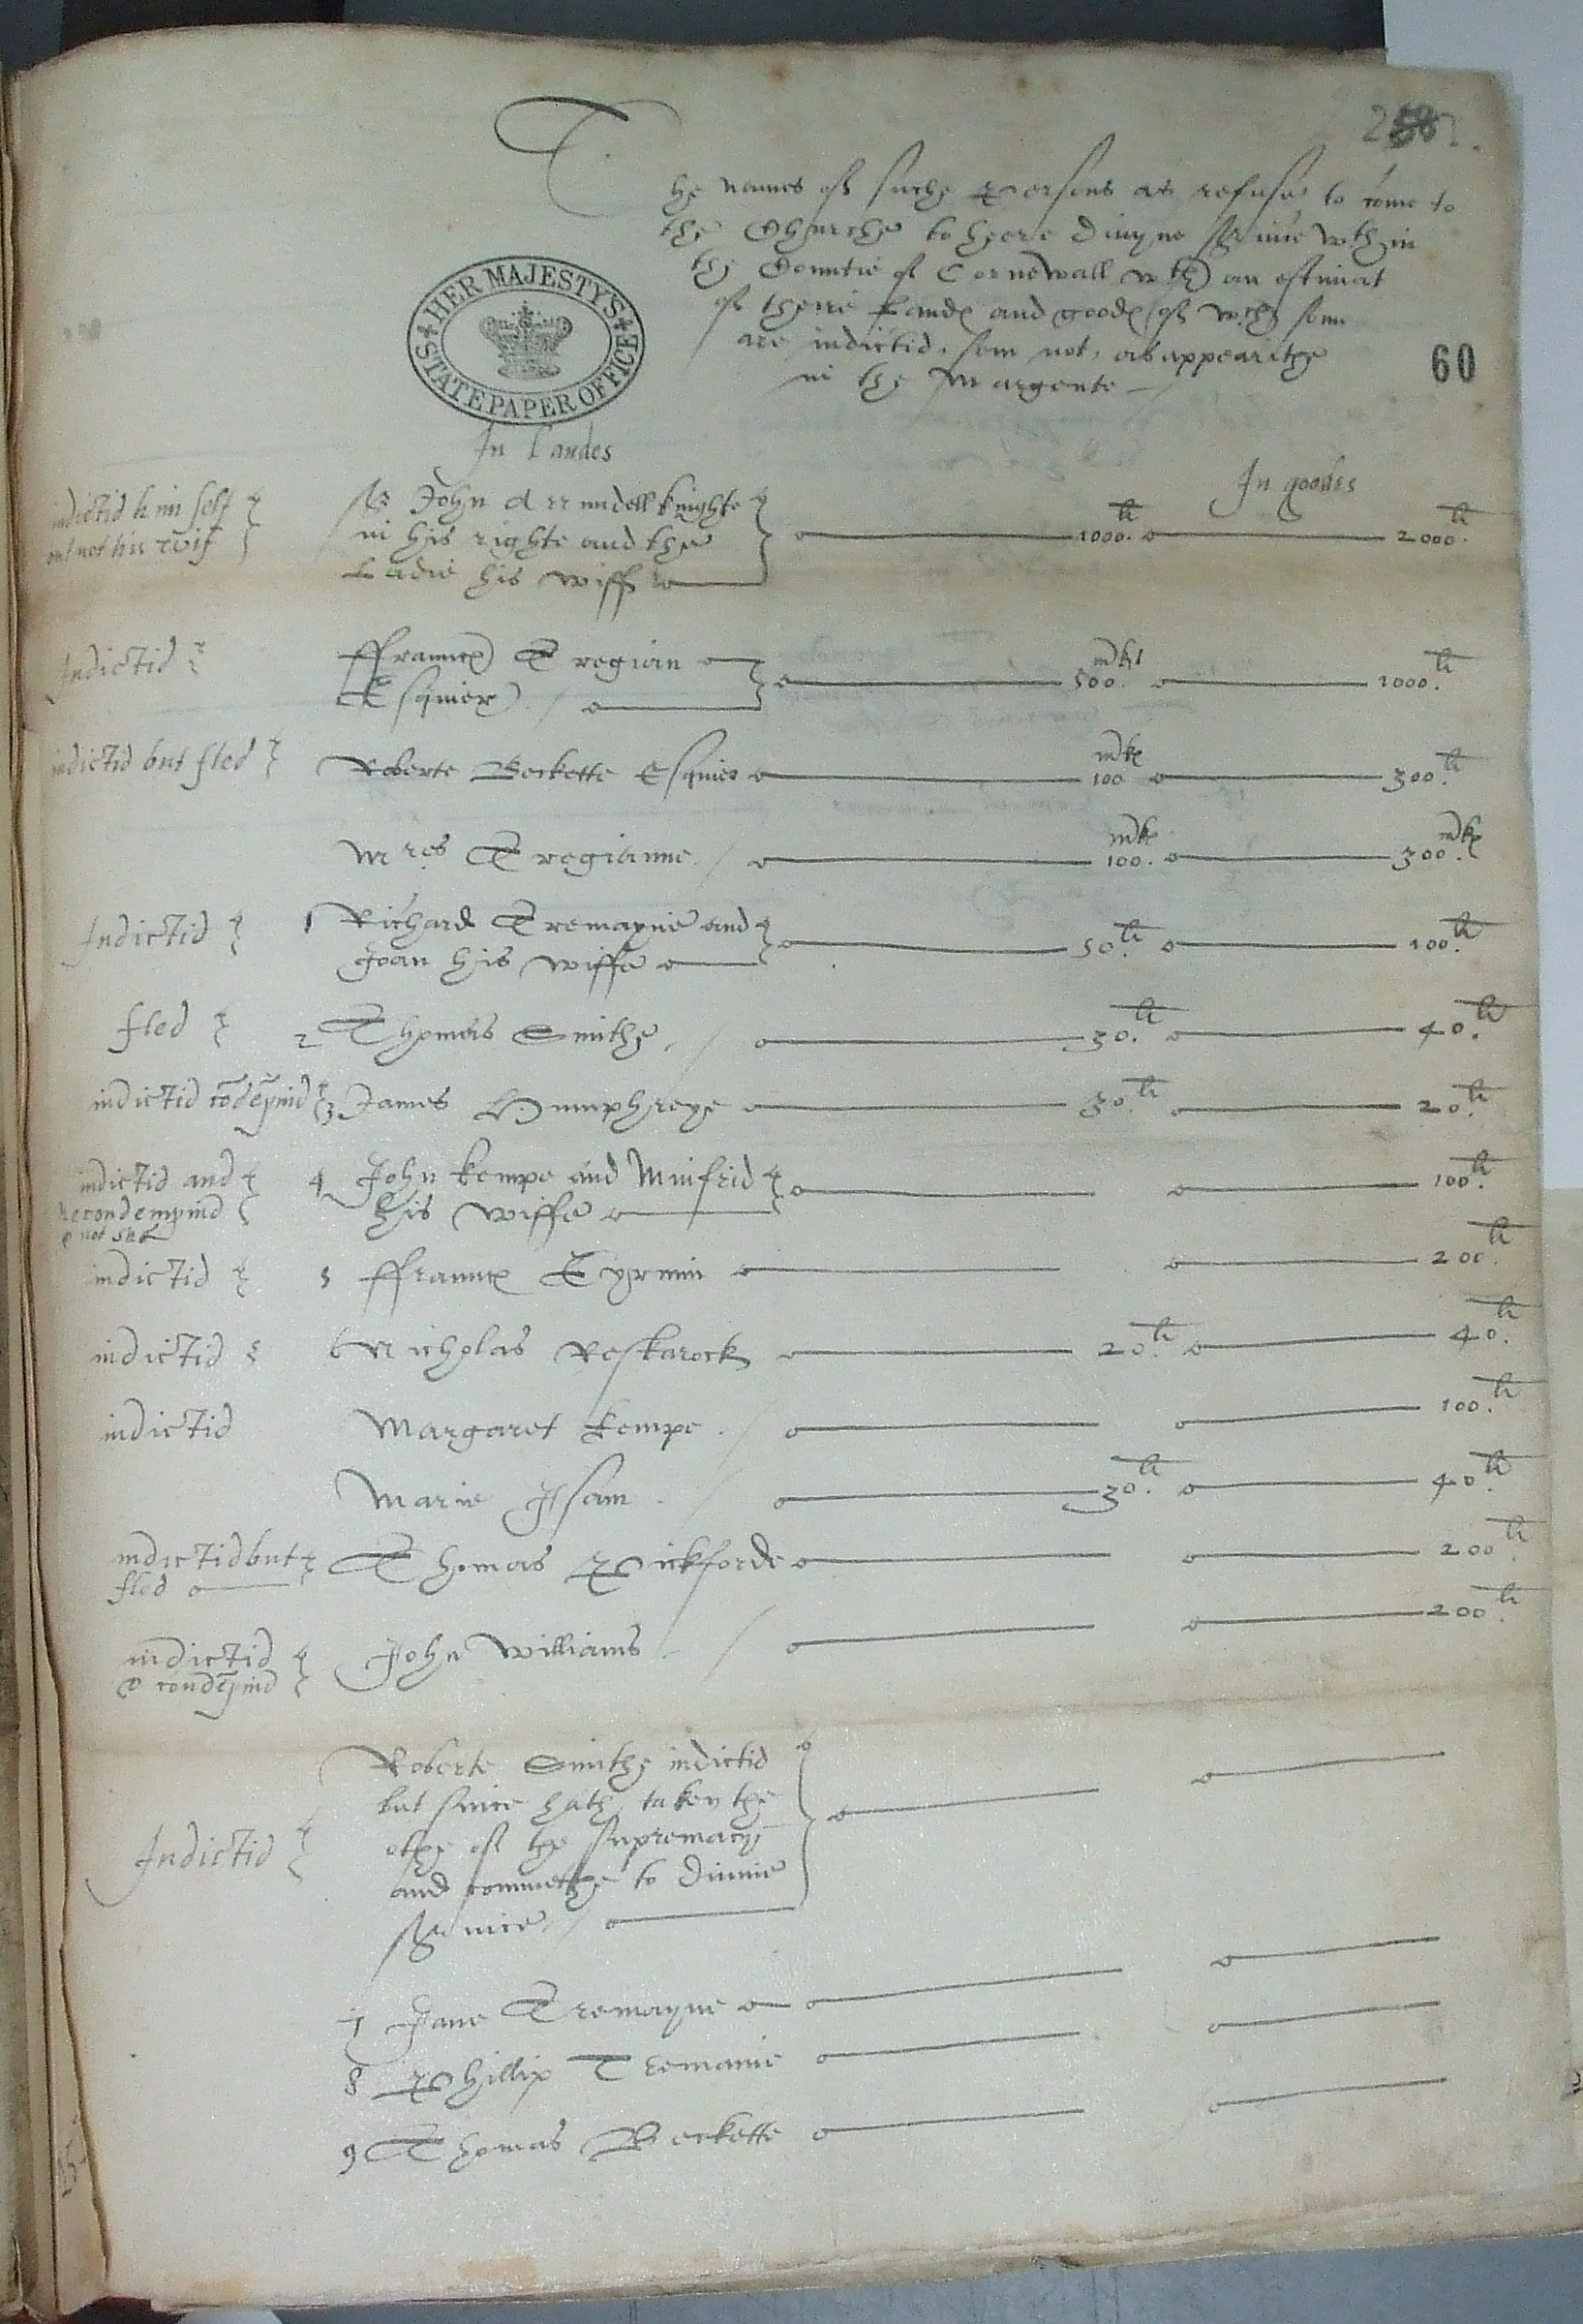 282.
The names off suche Persons as refuse to come to
the Churche to heere divyne Service wthin
the Countie of Cornewall wth an estimat
off theire Landes and goodes off wch som
are indictid, som not, as appearithe
in the Margente
60
HER MAJESTY'S STATE PAPER OFFICE
In Landes
In goodes
indictid him self
but not his wif
Sr John Arrundell knighte
in his righte and the
Ladie his wiffe
1000li
2000li
Indictid
ffraunces Tregian
Esquier
500 mkes
1000li
indictid but fled
Roberte Beckette Esquier
100 mkes
300li
Mres Tregianne
100 mkes
300 mkes
Indictid
1 Richard Tremayne and
Joan his wiffe
50li
100li
fled
2 Thomas Smithe
30li
40li
indictid codemnid
3 James Humphreye
30li
20li
indictid and
condempnid
not
4 John kempe and Winifrid
his wiffe
100li
indictid
5 ffraunces Tyrmin
200li
indictid
6 Nicholas Roskarock
20li
40li
indictid
Margaret kempe
100li
Marie Isam
30li
40li
indictid but
fled
Thomas Pickforde
200li
indictid
& condemnid
John Williams
200li
Indictid
Roberte Smithe indictid
but since hath taken the
othe off the supremacy
and comethe to divine
Service
7 Jane Tremayne
8 Phillip Tremanie
9 Thomas Beckette